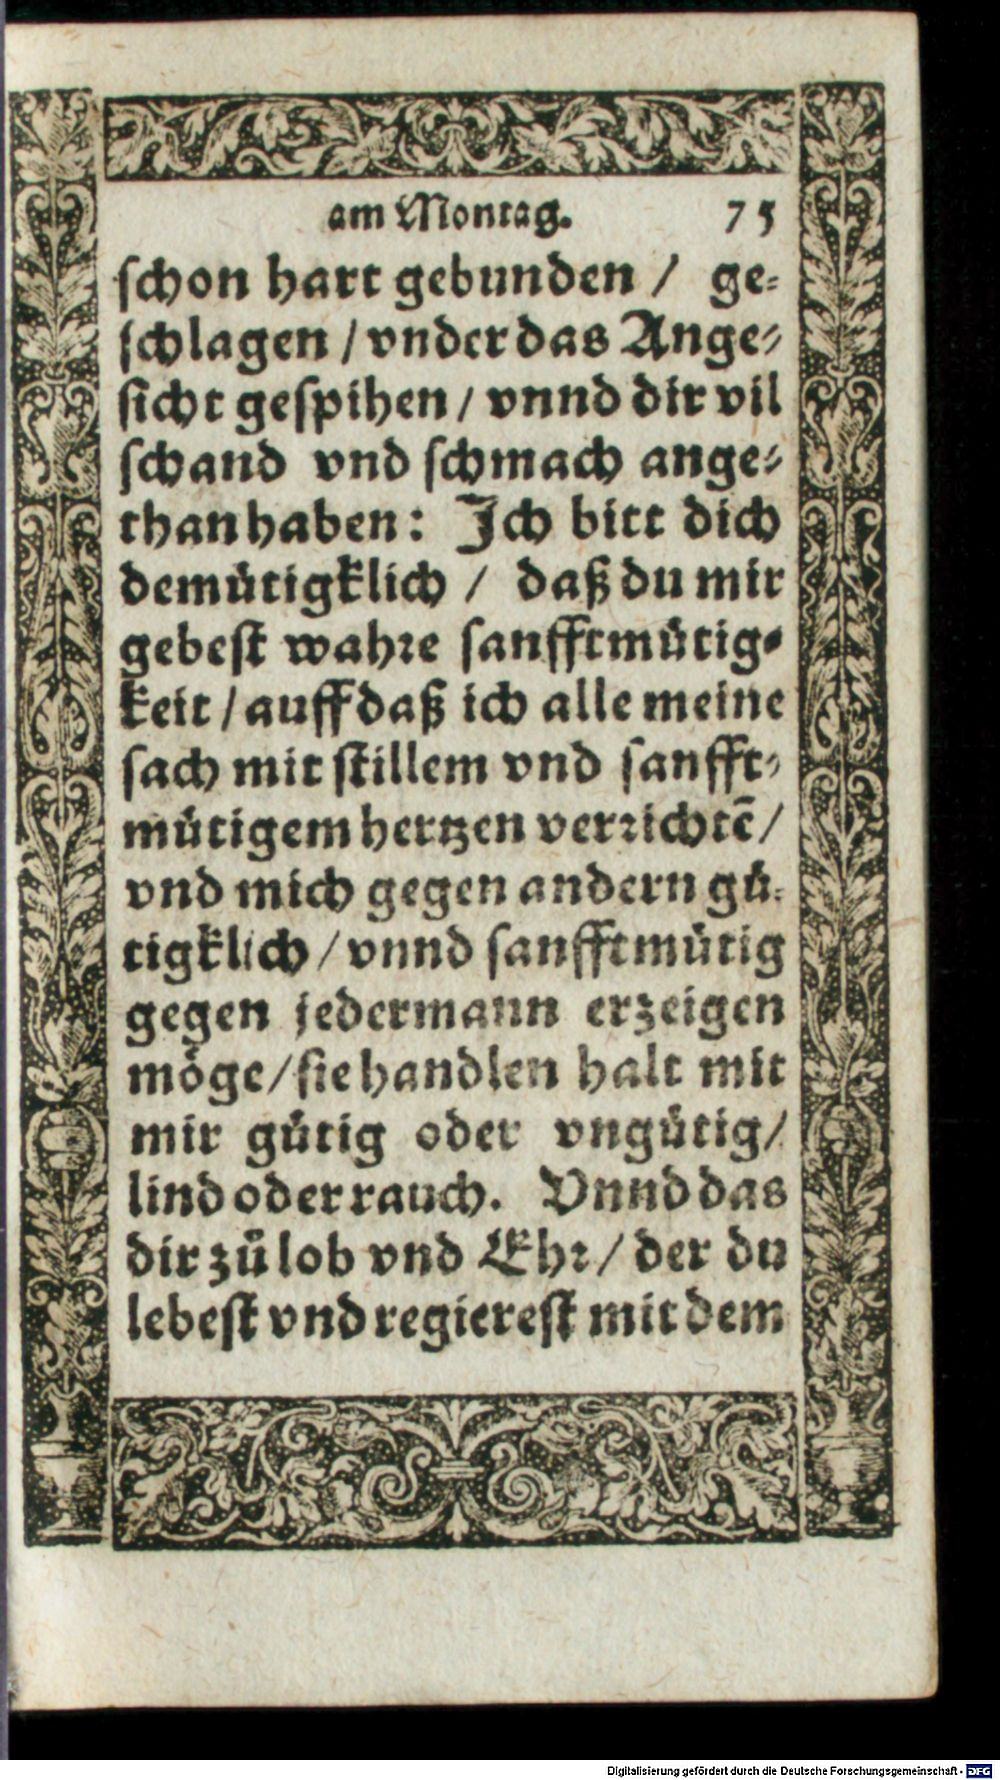 am Montag. 75
schon hart gebunden / ge⸗
schlagen / vnder das Ange⸗
sicht gespihen / vnnd dir vil
schand vnd schmach ange⸗
than haben: Ich bitt dich
demütigklich / daß du mir
gebest wahre sanfftmütig⸗
keit / auff daß ich alle meine
sach mit stillem vnd sanfft⸗
mütigem hertzen verrichtē /
vnd mich gegen andern gü⸗
tigklich / vnnd sanfftmütig
gegen jedermann erzeigen
möge / sie handlen halt mit
mir gütig oder vngütig /
lind oder rauch. Vnnd das
dir zů lob vnd Ehr / der du
lebest vnd regierest mit dem
Digitalisierung gefördert durch die Deutsche Forschungsgemeinschaft - DFG